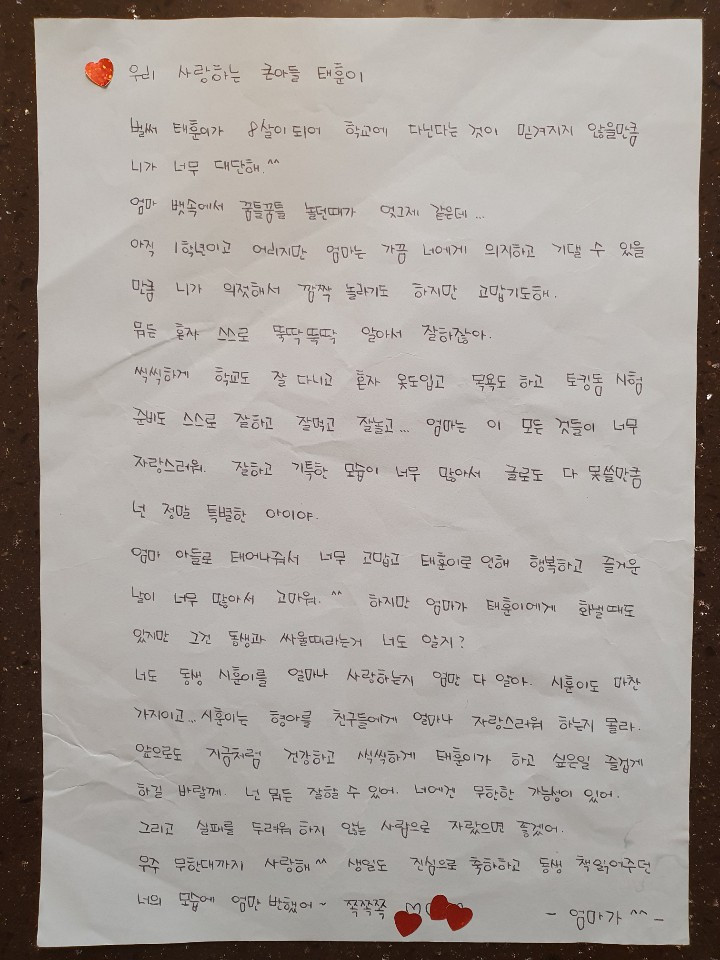 우리 사랑하는 큰아들 태훈이
벌써 태훈이가 8살이 되어 학교에 다닌다는 것이 믿겨지지 않을만큼
니가 너무 대단해.^^
엄마 뱃속에서 꿈틀꿈틀 놀던때가 엊그제 같은데...
아직 1학년이고 어리지만 엄마는 가끔 너에게 의지하고 기댈 수 있을
만큼 니가 의젓해서 깜짝 놀라기도 하지만 고맙기도해.
뭐든 혼자 스스로 뚝딱뚝딱 알아서 잘하잖아.
씩씩하게 학교도 잘 다니고 혼자 옷도입고 목욕도 하고 토킹돔 시험
준비도 스스로 잘하고 잘먹고 잘놀고... 엄마는 이 모든 것들이 너무
자랑스러워. 잘하고 기특한 모습이 너무 많아서 글로도 다 못쓸만큼
넌 정말 특별한 아이야.
엄마 아들로 태어나줘서 너무 고맙고 태훈이로 인해 행복하고 즐거운
날이 너무 많아서 고마워.^^ 하지만 엄마가 태훈이에게 화낼때도
있지만 그건 동생과 싸울때라는거 너도 알지?
너도 동생 시훈이를 얼마나 사랑하는지 엄만 다 알아. 시훈이도 마찬
가지이고... 시훈이는 형아를 친구들에게 얼마나 자랑스러워 하는지 몰라.
앞으로도 지금처럼 건강하고 씩씩하게 태훈이가 하고 싶은일 즐겁게
하길 바랄께. 넌 뭐든 잘할 수 있어. 너에겐 무한한 가능성이 있어.
그리고 실패를 두려워 하지 않는 사람으로 자랐으면 좋겠어.
우주 무한대까지 사랑해^^ 생일도 진심으로 축하하고 동생 책읽어주던
너의 모습에 엄만 반했어~ 쪽쪽쪽
- 엄마가 ^^ -